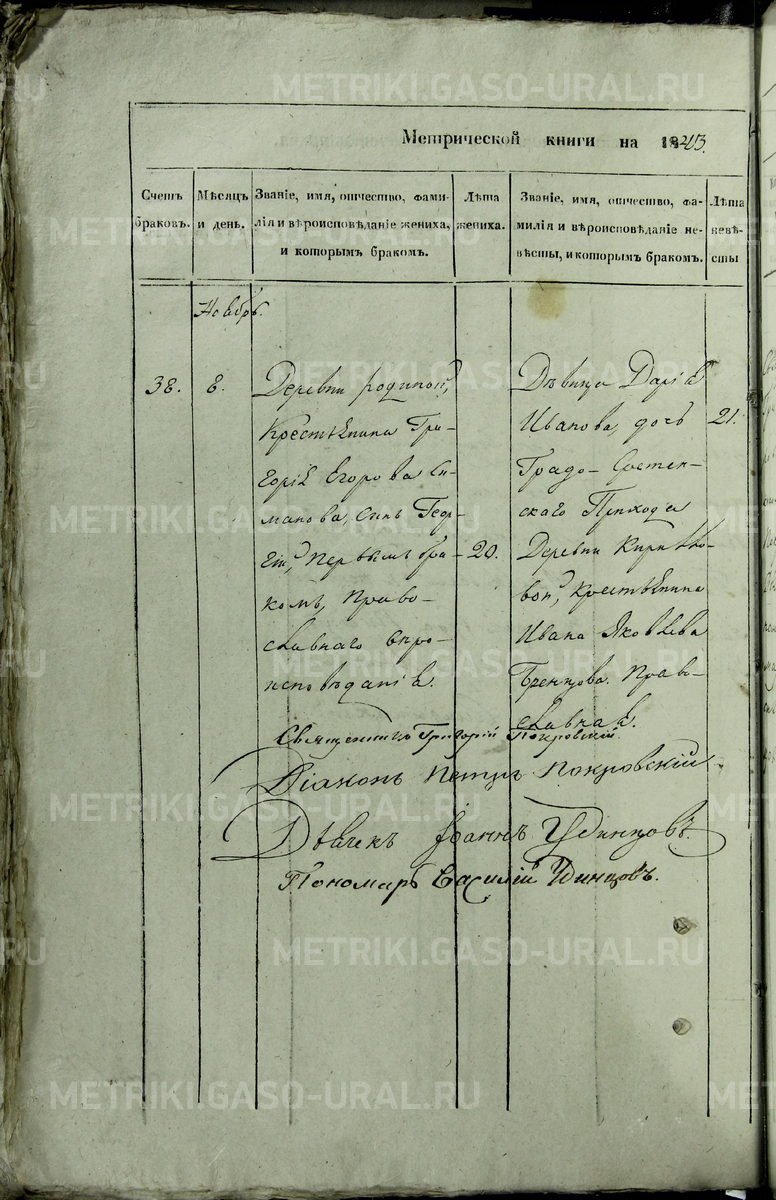 Метрической книги на 1843.
Счетъ браковъ.
Мѣсяцъ и день.
Званіе, имя, отчество, фами-
лія и вѣроисповѣданіе жениха,
и которымъ бракомъ.
Лѣта
жениха.
Званіе, имя, отчество, фа-
милія и вѣроисповѣданіе не-
вѣсты, и которымъ бракомъ.
Лѣта
невѣ-
сты
Ноябрь.
38.
8.
Деревни
Крестьянина Гри-
горія Егорова
сынъ Геор-
гій, первымъ бра-
комъ, Право-
славнаго вѣро-
исповѣданія.
20.
Дѣвица Дарія
Иванова, дочь
Градо-Сретен-
скаго Прихода
Деревни
Крестьянина
Ивана Яковлева
Право-
славная.
21.
Священникъ Григорій Покровскій.
Діаконъ Петръ Покровскій
Дьячекъ Іоаннъ Удинцовъ.
Пономарь Василій Удинцовъ.
METRIKI.GASO-URAL.RU